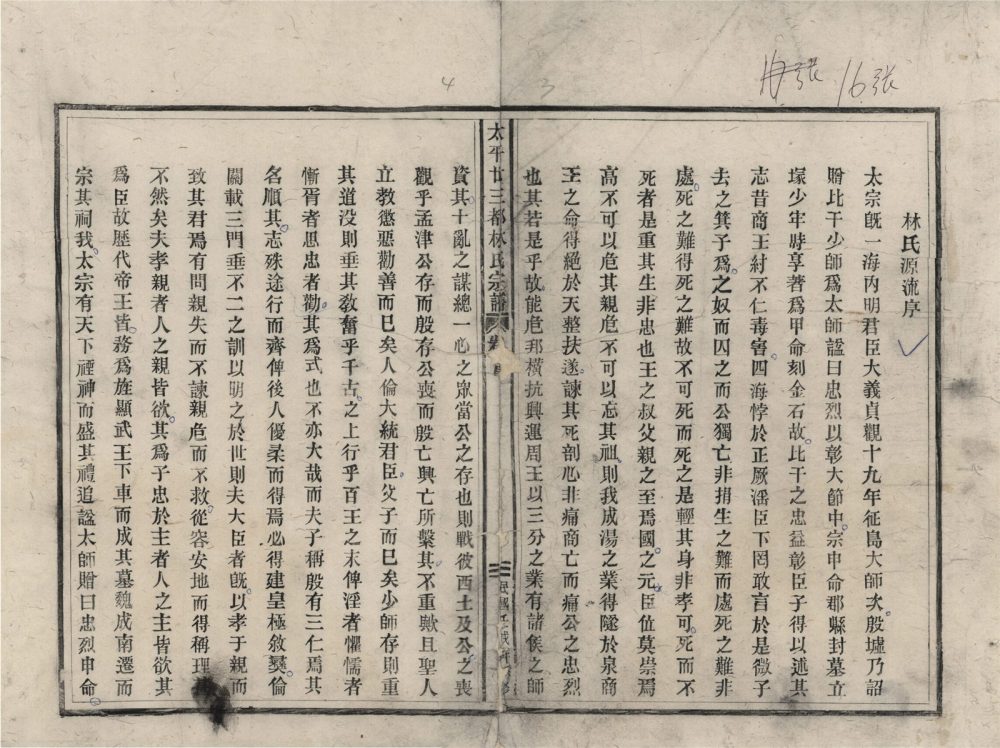 海張 16張
4
3
林氏源流序
太宗旣一海內明君臣大義貞觀十九年征島大師次殷墟乃詔
贈比干少師爲太師諡曰忠烈以彰大節申宗申命郡縣封墓立
塚少牢時享著爲甲命刻金石故比干之忠益彰臣子得以述其
志昔商王紂不仁毒害四海悖於正厥潘臣下罔敢言於是微子
去之箕子爲之奴而囚之而公獨亡非捐生之難而處死之難非
處死之難得死之難故不可死而死之是輕其身非孝可死而不
死者是重其生非忠也王之叔父親之至焉國之元臣位莫崇焉
高不可以危其親危不可以忘其祖則我成湯之業得隧於泉商
王之命得絕於天整扶遂諫其死剖心非痛商亡而痛公之忠烈
也其若是乎故能危邦橫抗興運周王以三分之業有諸侯之師
太平廿三都林氏宗譜
資其十亂之謀總一心之眾當公之存也則戰彼西土及公之喪
觀乎孟津公存而殷存公喪而殷亡興亡所繫其不重歟且聖人
立教懲惡勸善而已矣人倫大統君臣父子而已矣少師存則重
其道没則垂其敎奮乎千古之上行乎百王之末俾淫者懼懦者
慚胥者思忠者勸其爲式也不亦大哉而夫子稱殷有三仁焉其
名順其志殊途行而齊俾後人優柔而得焉必得建皇極敘彝倫
闢載三門垂不二之訓以明之於世則夫大臣者旣以孝于親而
致其君焉有問親失而不諫親危而不救從容安地而得稱理
不然矣夫孝親者人之親皆欲其爲子忠於主者人之主皆欲其
爲臣故歷代帝王皆務爲旌顯武王下車而成其墓魏成南遷而
宗其祠我太宗有天下禋神而盛其禮追諡太師贈曰忠烈申命